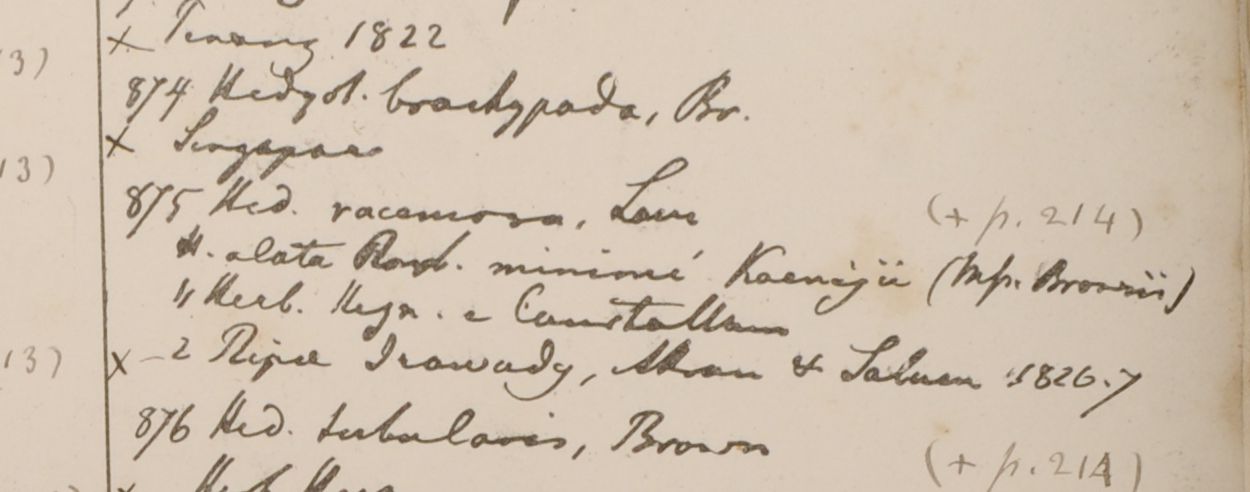 3)
x Penang 1822
874 Hedyot. brachypoda, Br.
x Singapore
13)
875 Hed. racemosa, Lam (+ p. 214)
H. alata Roxb. minimé Koenigii (Mss. Brownii)
" Herb. Heyn. e
13) x - 2 Ripae Irawady, & Saluen 1826.7
876 Hed. tubularis, Brown (+ p. 214)